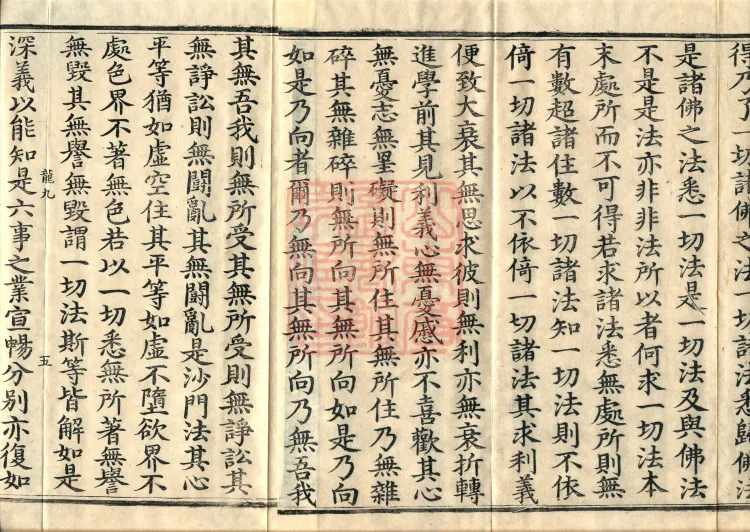 得乃了一切諸佛之法一切諸法悉歸佛法
是諸佛之法悉一切法是一切法及與佛法
不是是法亦非非法所以者何求一切法本
末處所而不可得若求諸法悉無處所則無
有數超諸住數一切諸法知一切法則不依
倚一切諸法以不依倚一切諸法其求利義
便致大衰其無思求彼則無利亦無衰折轉
進學前其見利義心無憂慼亦不喜歡其心
無憂志無罣礙則無所住其無所住乃無雜
碎其無雜碎則無所向其無所向如是乃向
如是乃向者爾乃無向其無所向乃無吾我
其無吾我則無所受其無所受則無諍訟其
無諍訟則無鬪亂其無鬪亂是沙門法其心
平等猶如虛空住其平等如虛不墮欲界不
處色界不著無色若以一切悉無所著無譽
無毀其無譽無毀謂一切法斯等皆解如是
龍九 五
深義以能知是六事之業宣暢分別亦復如